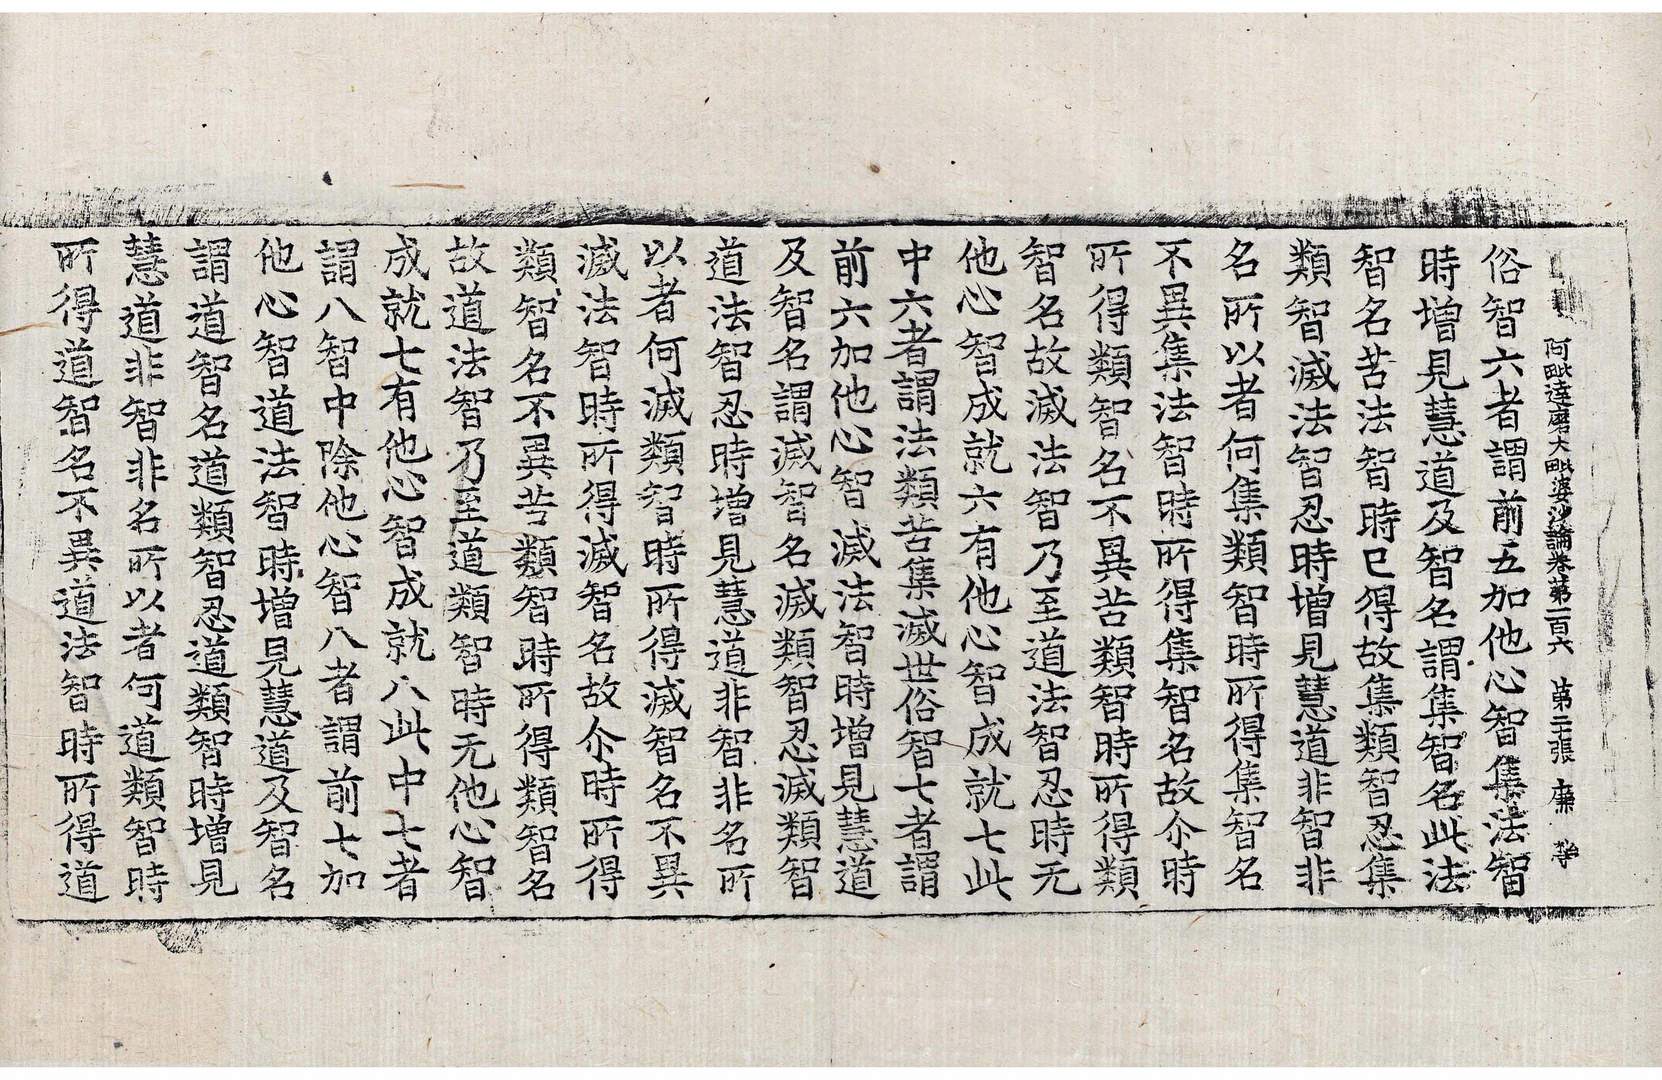 阿毗達磨大毗婆沙論卷第一百六 第二十張 廉
俗智六者謂前五加他心智集法智
時增見慧道及智名謂集智名此法
智名苦法智時已得故集類智忍集
類智滅法智忍時增見慧道非智非
名所以者何集類智時所得集智名
不異集法智時所得集智名故尒時
所得類智名不異苦類智時所得類
智名故滅法智乃至道法智忍時无
他心智成就六有他心智成就七此
中六者謂法類苦集滅世俗智七者謂
前六加他心智滅法智時增見慧道
及智名謂滅智名滅類智忍滅類智
道法智忍時增見慧道非智非名所
以者何滅類智時所得滅智名不異
滅法智時所得滅智名故尒時所得
類智名不異苦類智時所得類智名
故道法智乃至道類智時无他心智
成就七有他心智成就八此中七者
謂八智中除他心智八者謂前七加
他心智道法智時增見慧道及智名
謂道智名道類智忍道類智時增見
慧道非智非名所以者何道類智時
所得道智名不異道法智時所得道